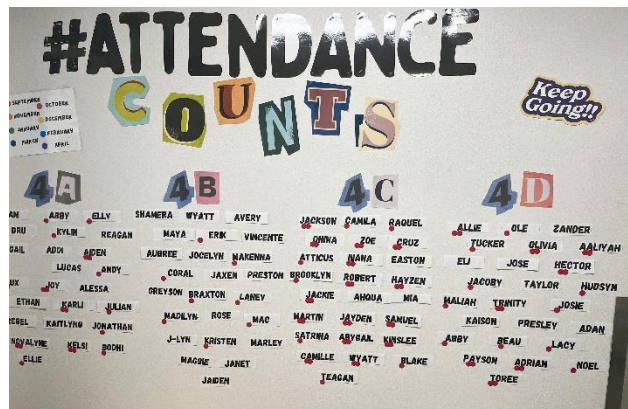 #ATTENDANCE
COUNTS
Keep
Going!!
SEPTEMBER
OCTOBER
NOVEMBER
DECEMBER
JANUARY
FEBRUARY
MARCH
APRIL
4A
ABBY ELLY
DRU KYLIN REAGAN
ADDI AIDEN
LUCAS ANDY
JOY ALESSA
ETHAN KARLI JULIAN
KAITLYNG JONATHAN
NOVALYNE KELSI BODHI
ELLIE
4B
SHAMERA WYATT AVERY
MAYA ERIK VINCENTE
AUBREE JOCELYN MAKENNA
CORAL JAXEN PRESTON
GREYSON BRAXTON LANEY
MADILYN ROSE MAC
J-LYN KRISTEN MARLEY
MAGGIE JANET
JAIDEN
4C
JACKSON CAMILA RAQUEL
CHINA ZOE CRUZ
ATTICUS NANA EASTON
BROOKLYN ROBERT HAYZEN
JACKIE AHQUA MIA
MARTIN JAYDEN SAMUEL
SATRINA ABYGAIL KINSLEE
CAMILLE WYATT BLAKE
TEAGAN
4D
ALLIE OLE ZANDER
TUCKER OLIVIA AALIYAH
ELI JOSE HECTOR
JACOBY TAYLOR HUDSYN
MALIAH TRINITY JOSIE
KAISON PRESLEY ADAN
ABBY BEAU LACY
PAYSON ADRIAN NOEL
TOREE